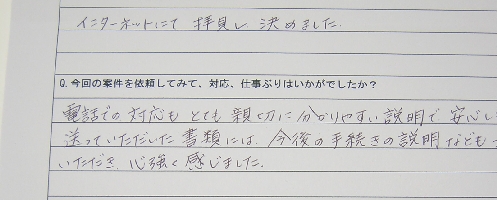 インターネットにて 拝見し 決めました.
Q. 今回の案件を依頼してみて、対応、仕事ぶりはいかがでしたか？
電話での対応も とても 親切に 分かりやすい 説明で 安心し
送っていただいた 書類には、今後の手続きの説明なども つ
いただき、心強く 感じました.